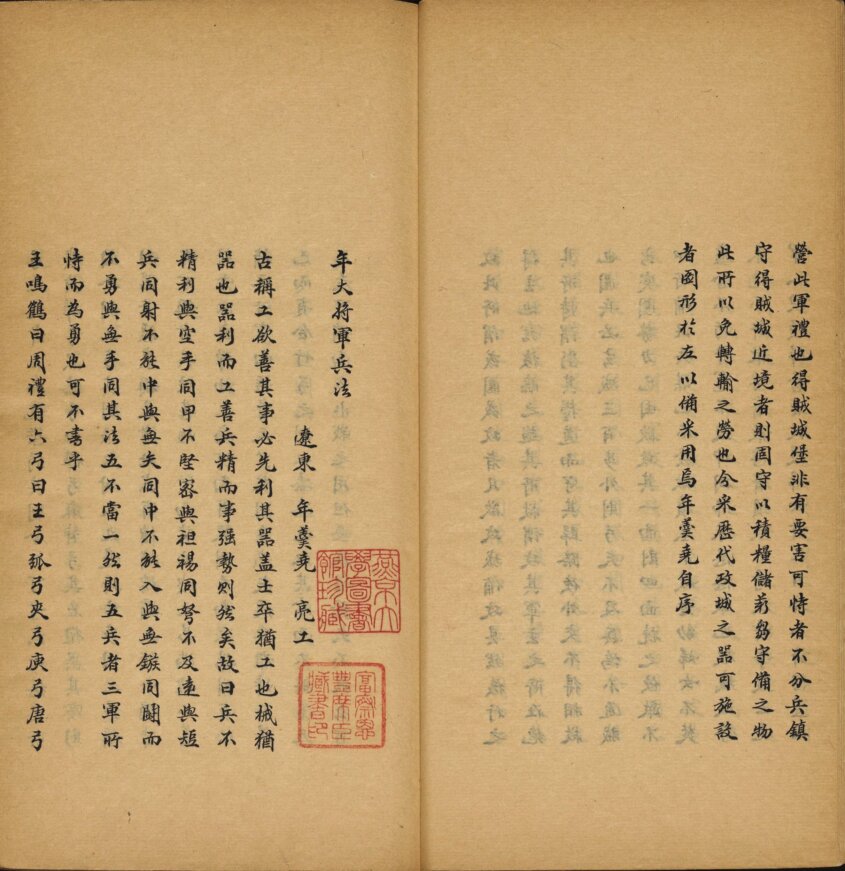 營此軍禮也得賊城堡非有要害可恃者不分兵鎮
守得賊城近境者則固守以積糧儲蒭芻守備之物
此所以免轉輸之勞也今采歷代攻城之器可施設
者圖形於左以備采用焉年羹堯自序
年大將軍兵法
遼東 年羹堯 亮工
燕京大
學圖書
館珍藏
富察恩
豐席臣
藏書印
古稱工欲善其事必先利其器盖士卒猶工也械猶
器也器利而工善兵精而事强勢則然矣故曰兵不
精利與空手同甲不堅密與袒裼同弩不及遠與短
兵同射不能中與無矢同中不能入與無鏃同鬪而
不勇與無手同其法五不當一然則五兵者三軍所
恃而為勇也可不書乎
王鳴鶴曰周禮有六弓曰王弓弧弓夾弓庾弓唐弓